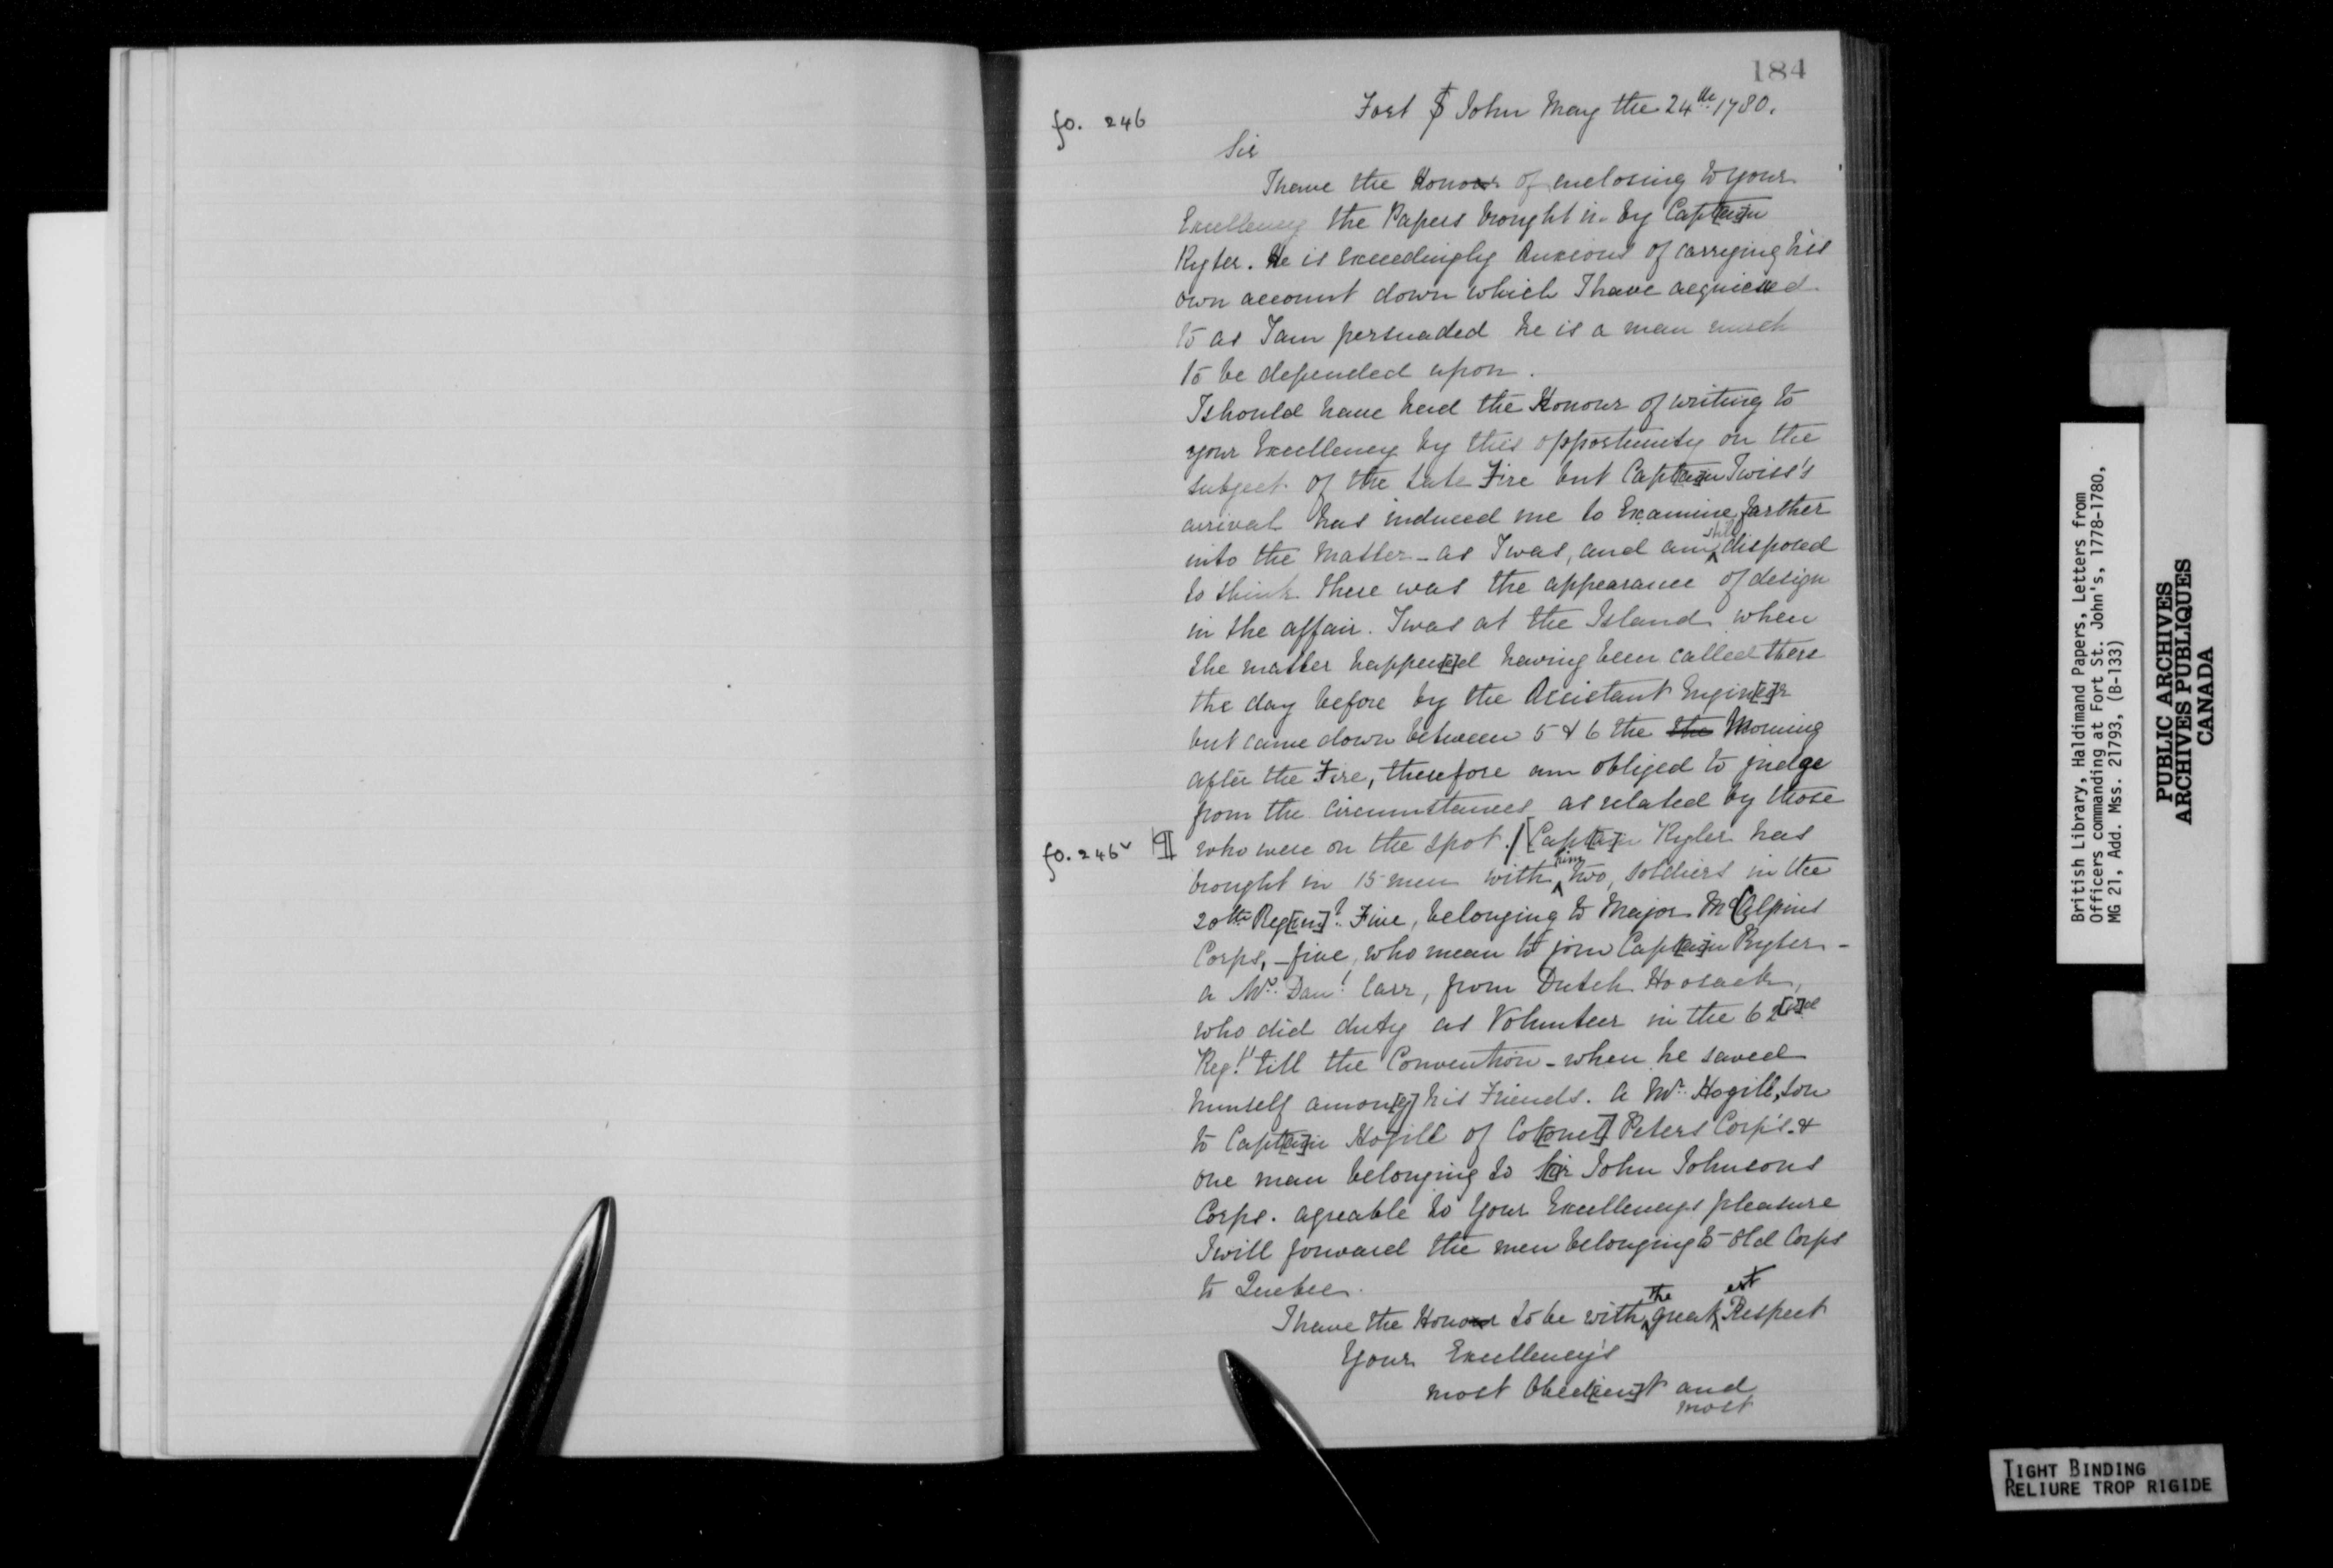 184
fo. 246
Fort St John May the 24th 1780.
Sir
I have the Honour of enclosing to your
Excellency the Papers brought in by Capt[ai]n
Ryter. He is exceedingly Anxious of carrying his
own account down which I have acquiesced
to as I am persuaded he is a man much
to be depended upon.
I should have had the Honour of writing to
your Excellency by this opportunity on the
subject of the Late Fire but Capt[ai]n Twiss's
arrival has induced me to Examine farther
into the Matter - as I was, and am still disposed
to think there was the appearance of design
in the affair. I was at the Island when
the matter happen[e]d having been called there
the day before by the Assistant Engin[ee]r
but came down between 5 & 6 the the Morning
after the Fire, therefore am obliged to judge
from the circumstances as related by those
fo. 246v ¶ who were on the spot. / [Capt[ai]n Ryter has
brought in 15 men with him two, soldiers in the
20th Reg[imen]t. Five, belonging to Major McAlpins
Corps, - five, who mean to join Capt[ai]n Ryter -
a Mr. Danl. Carr, from Dutch Hoosack,
who did duty as Volunteer in the 62[n]d
Regt. till the Convention - when he saved
himself amon[g] his Friends. A Mr. Hogill, son
to Capt[ai]n Hogill of Co[lonel] Peters Corp's. &
one man belonging to Sir John Johnsons
Corps. agreable to Your Excellencys pleasure
I will forward the men belonging to old Corps
to Quebec.
I have the Honour to be with the greatest Respect
Your Excellency's
most Obed[ien]t and
most
British Library, Haldimand Papers, Letters from
Officers commanding at Fort St. John's, 1778-1780,
MG 21, Add. Mss. 21793, (B-133)
PUBLIC ARCHIVES
ARCHIVES PUBLIQUES
CANADA
TIGHT BINDING
RELIURE TROP RIGIDE